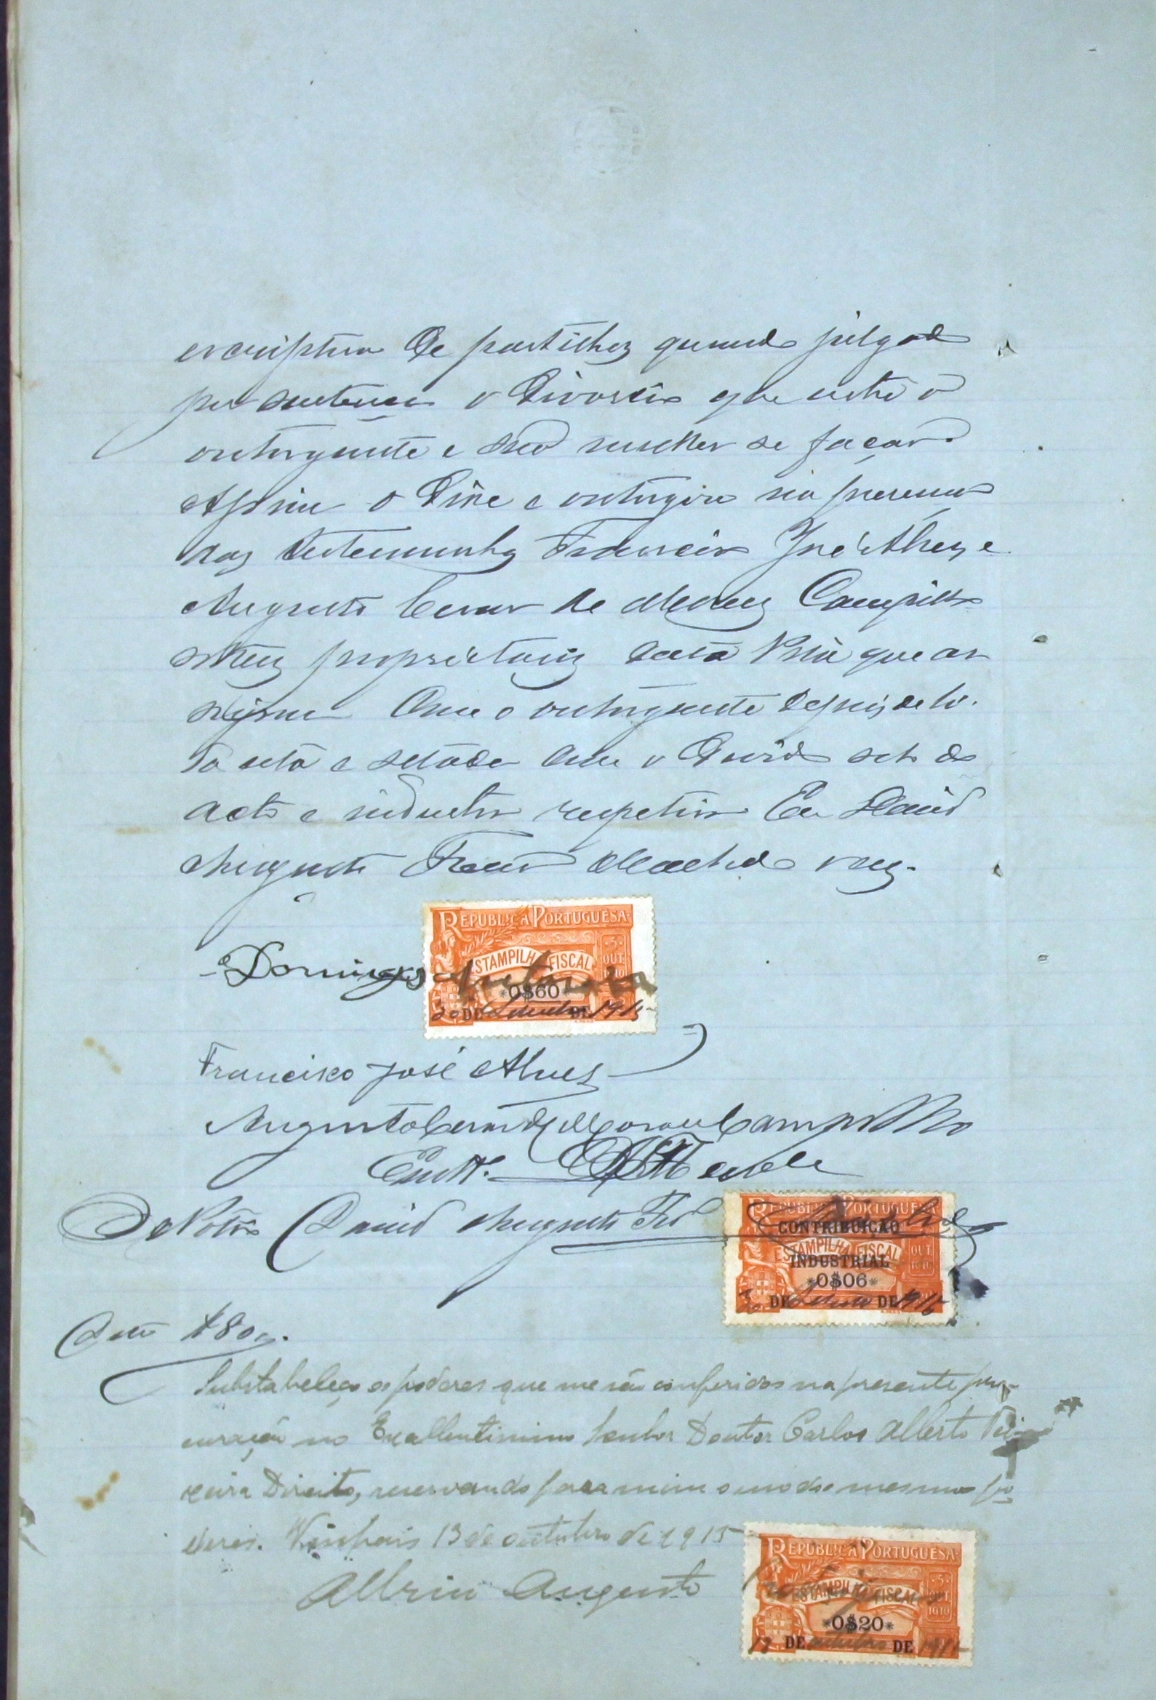 escriptura de partilhas quando julgado
por sentença o divorcio que entre o
outorgante e sua mulher se façar.
Assim o disse e outorgou na presença
das testemunhas Francisco José Alves e
Augusto Cesar de Moraes Campilho
proprietarios desta Villa que as
signam com o outorgante depois de li-
da esta e sellada com o devido sello do
acto e reperti Eu David
Augusto Machado
REPUBLICA PORTUGUESA
5 OUT 1910
ESTAMPILHA FISCAL
*0$60*
Domingos Antonio
20 DE Setembro DE 1915
Francisco José Alves
Augusto Cesar de Moraes Campilho
David Augusto
REPUBLICA PORTUGUESA
CONTRIBUIÇÃO
ESTAMPILHA FISCAL
OUT 1910
INDUSTRIAL
*0$06*
DE Setembro DE 1915
$80
Substabeleço os poderes que me são conferidos na presente pro-
curação no Excellentissimo Senhor Doutor Carlos Alberto Tei-
xeira Direito, reservando para mim o uso dos mesmos po-
deres. Vinhais 13 de outubro de 1915
Augusto
REPUBLICA PORTUGUESA
5 OUT 1910
ESTAMPILHA FISCAL
*0$20*
13 DE outubro DE 1915